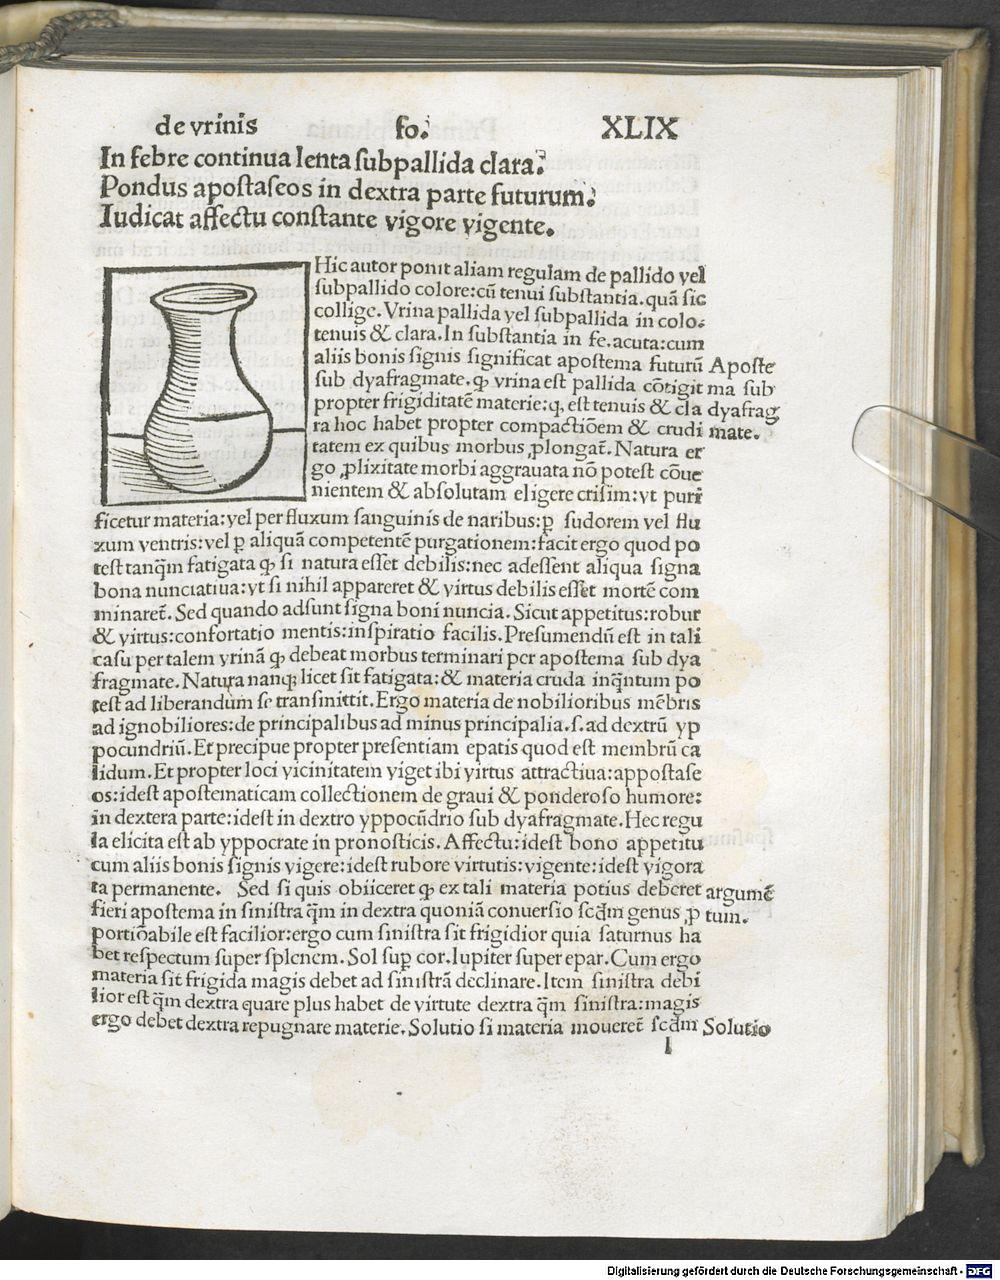 de vrinis fo. XLIX
In febre continua lenta subpallida clara.
Pondus apostaseos in dextra parte futurum.
Iudicat affectu constante vigore vigente.
Hic autor ponit aliam regulam de pallido vel
subpallido colore:cũ tenui substantia.quã sic
collige.Vrina pallida vel subpallida in colo.
tenuis & clara.In substantia in fe.acuta:cum
aliis bonis signis significat apostema futurũ Aposte
sub dyafragmate.ꝙ vrina est pallida cõtigit ma sub
propter frigiditatẽ materie:q, est tenuis & cla dyafrag
ra hoc habet propter compactiõem & crudi mate.
tatem ex quibus morbus ꝓlongat̃. Natura er
go ꝓlixitate morbi aggrauata nõ potest cõue
nientem & absolutam eligere crisim:vt puri
ficetur materia:vel per fluxum sanguinis de naribus:ꝑ sudorem vel flu
xum ventris:vel ꝑ aliquã competentẽ purgationem:facit ergo quod po
test tanq̃m fatigata ꝙ si natura esset debilis:nec adessent aliqua signa
bona nunciatiua:vt si nihil appareret & virtus debilis esset mortẽ com
minaret̃. Sed quando adsunt signa boni nuncia. Sicut appetitus:robur
& virtus:confortatio mentis:inspiratio facilis. Presumendũ est in tali
casu per talem vrinã ꝙ debeat morbus terminari per apostema sub dya
fragmate. Natura nanq; licet sit fatigata:& materia cruda inq̃ntum po
test ad liberandum se transmittit. Ergo materia de nobilioribus mẽbris
ad ignobiliores:de principalibus ad minus principalia.s.ad dextrũ yp
pocundriũ. Et precipue propter presentiam epatis quod est membrũ ca
lidum. Et propter loci vicinitatem viget ibi virtus attractiua:appostase
os:idest apostematicam collectionem de graui & ponderoso humore:
in dextera parte:idest in dextro yppocũdrio sub dyafragmate. Hec regu
la elicita est ab yppocrate in pronosticis. Affectu:idest bono appetitu
cum aliis bonis signis vigere:idest rubore virtutis:vigente:idest vigora
ta permanente. Sed si quis obiiceret ꝙ ex tali materia potius deberet argumẽ
fieri apostema in sinistra q̃m in dextra quoniã conuersio scd̃m genus ꝓ tum.
portiõabile est facilior:ergo cum sinistra sit frigidior quia saturnus ha
bet respectum super splenem. Sol suꝑ cor. Iupiter super epar. Cum ergo
materia sit frigida magis debet ad sinistrã declinare. Item sinistra debi
lior est q̃m dextra quare plus habet de virtute dextra q̃m sinistra:magis
ergo debet dextra repugnare materie. Solutio si materia moueret̃ scd̃m Solutio
l
Digitalisierung gefördert durch die Deutsche Forschungsgemeinschaft - DFG